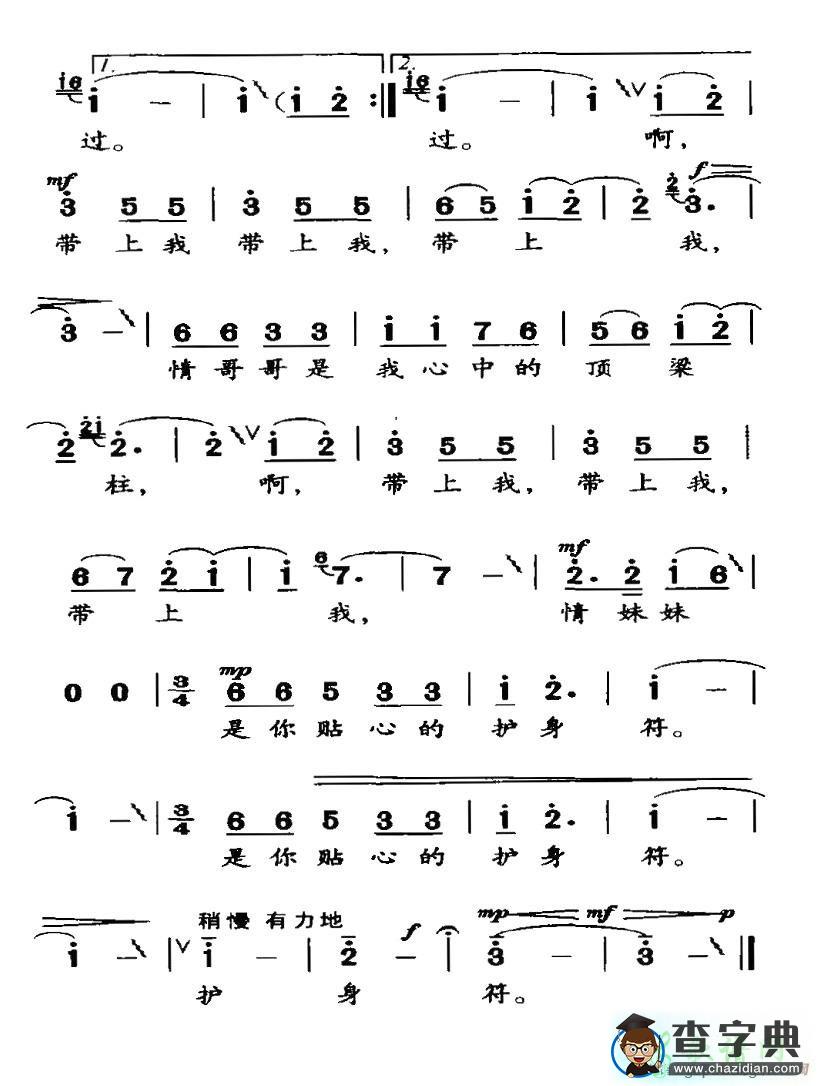 1. 2.
i6 i — | i (i 2 :‖ i6 i — | i ∨ i 2 |
过。 过。 啊,
mf f
3 5 5 | 3 5 5 | 6 5 i 2 | 2 2 3. |
带 上 我 带 上 我, 带 上 我,
3 — | 6 6 3 3 | i i 7 6 | 5 6 i 2 |
情 哥 哥 是 我 心 中 的 顶 梁
2 2i 2. | 2 ∨ i 2 | 3 5 5 | 3 5 5 |
柱, 啊, 带 上 我, 带 上 我,
mf
6 7 2 i | i 6 7. | 7 — | 2. 2 i 6 |
带 上 我, 情 妹 妹
mp
0 0 | 3/4 6 6 5 3 3 | i 2. | i — |
是 你 贴 心 的 护 身 符。
i — | 3/4 6 6 5 3 3 | i 2. | i — |
是 你 贴 心 的 护 身 符。
稍慢 有力地 f mp mf p
i — | ∨ i — | 2 — | i | 3 — | 3 — ‖
护 身 符。
查字典
www.chazidian.com